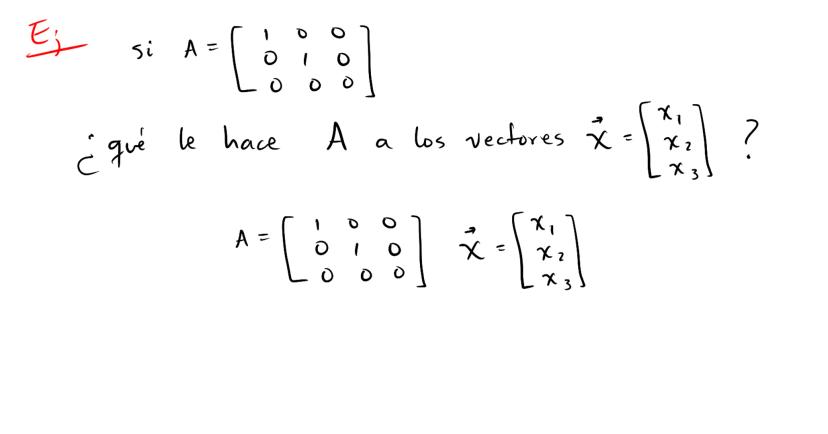 Ej si A = [ 1 0 0
0 1 0
0 0 0 ]
¿qué le hace A a los vectores x⃗ = [ x₁
x₂
x₃ ] ?
A = [ 1 0 0
0 1 0
0 0 0 ] x⃗ = [ x₁
x₂
x₃ ]